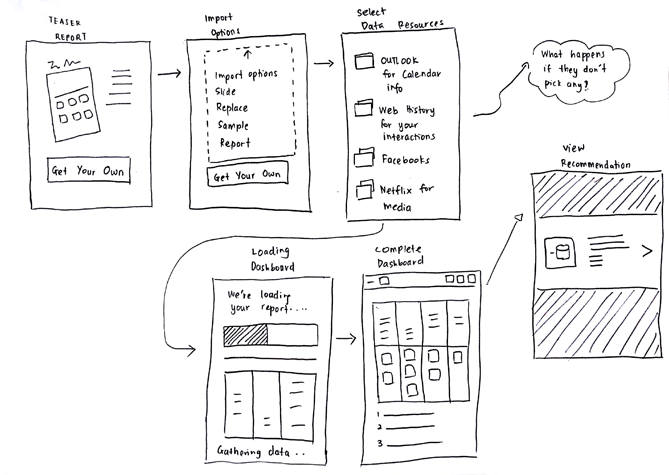 TEASER
REPORT
Get Your Own
Import
Options
Import options
Slide
Replace
Sample
Report
Get Your Own
Select
Data Resources
OUTLOOK
for Calendar
info
Web History
for your
interactions
Facebooks
Netflix for
media
What happens
if they don't
pick any?
View
Recommendation
Loading
Dashboard
We're loading
your report....
Gathering data ..
Complete
Dashboard
1
2
3